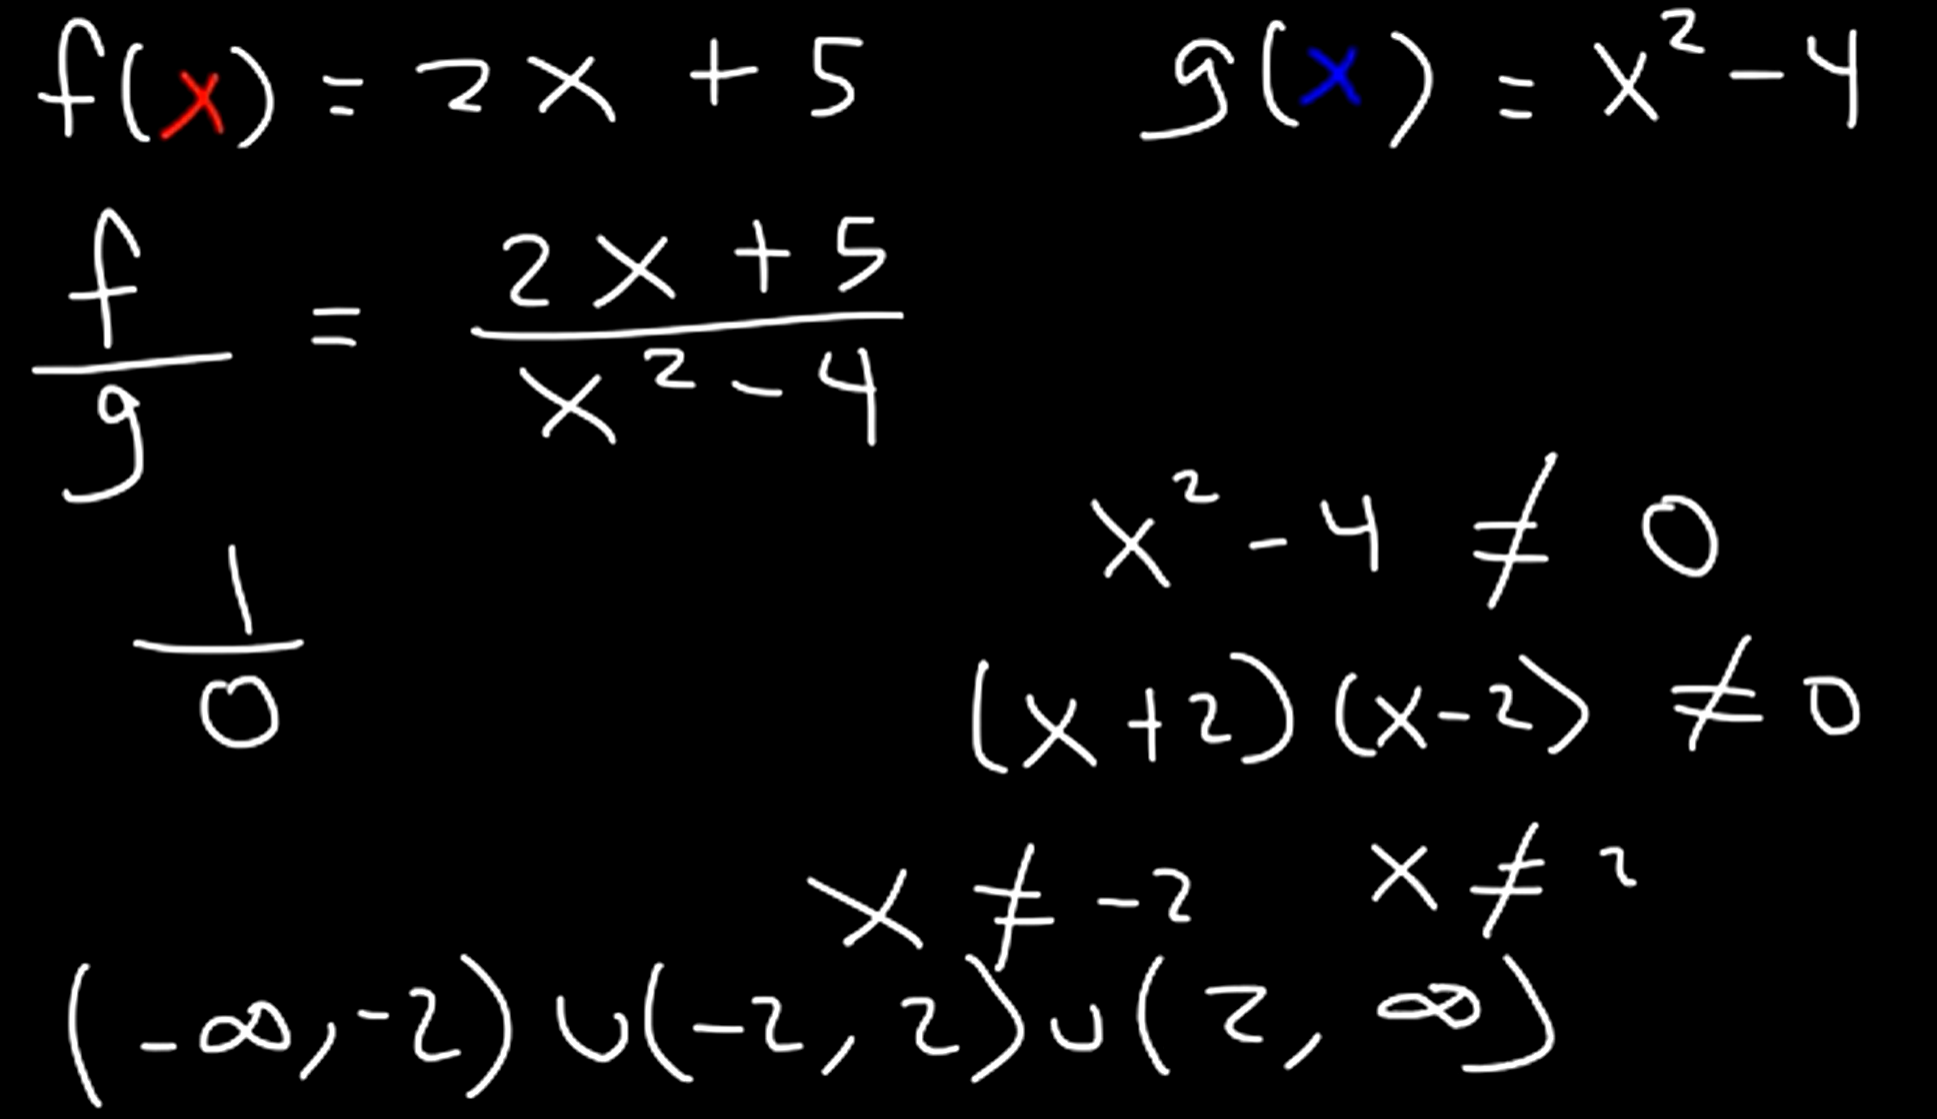 f(x) = 2x + 5    g(x) = x² - 4
f/g = (2x + 5)/(x² - 4)
x² - 4 ≠ 0
1/0
(x + 2)(x - 2) ≠ 0
x ≠ -2    x ≠ 2
(-∞, -2) ∪ (-2, 2) ∪ (2, ∞)